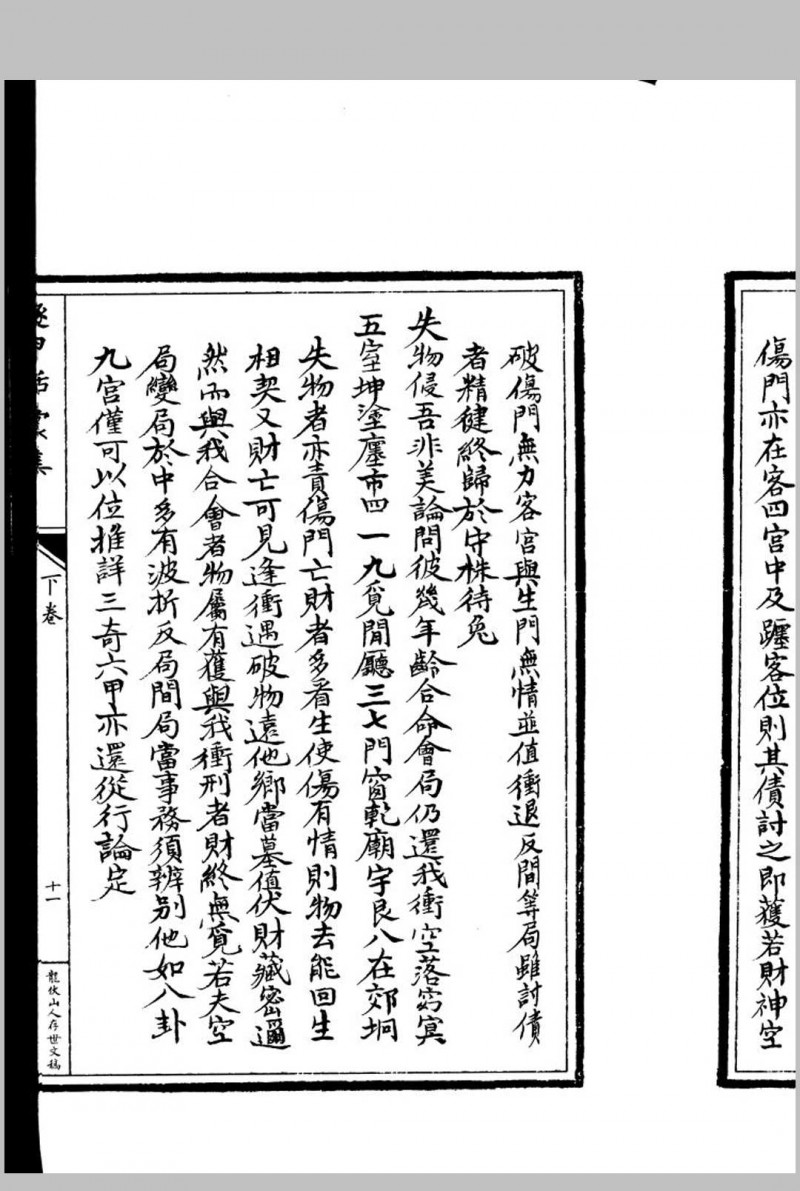 傷門亦在客四宮中及躔客位則其債討之即獲若財神空
破傷門無力客宮與生門無情並值衝退反間等局雖討債
者精健終歸於守株待兔
失物侵吾非美論問彼幾年齡合命會局仍還我衝空落窈冥
五室坤塗廛市四一九覓閒廳三七門窗乾廟宇艮八在郊坰
失物者亦責傷門亡財者多看生使傷有情則物去能回生
相契又財亡可見逢衝遇破物遠他鄉當墓值伏財藏密邇
然而與我合會者物屬有獲與我衝刑者財終無覓若夫空
局變局於中多有波折反局間局當事務須辨別他如八卦
九宮僅可以位推詳三奇六甲亦還從行論定
下卷
十一
龍伏山人存世文稿